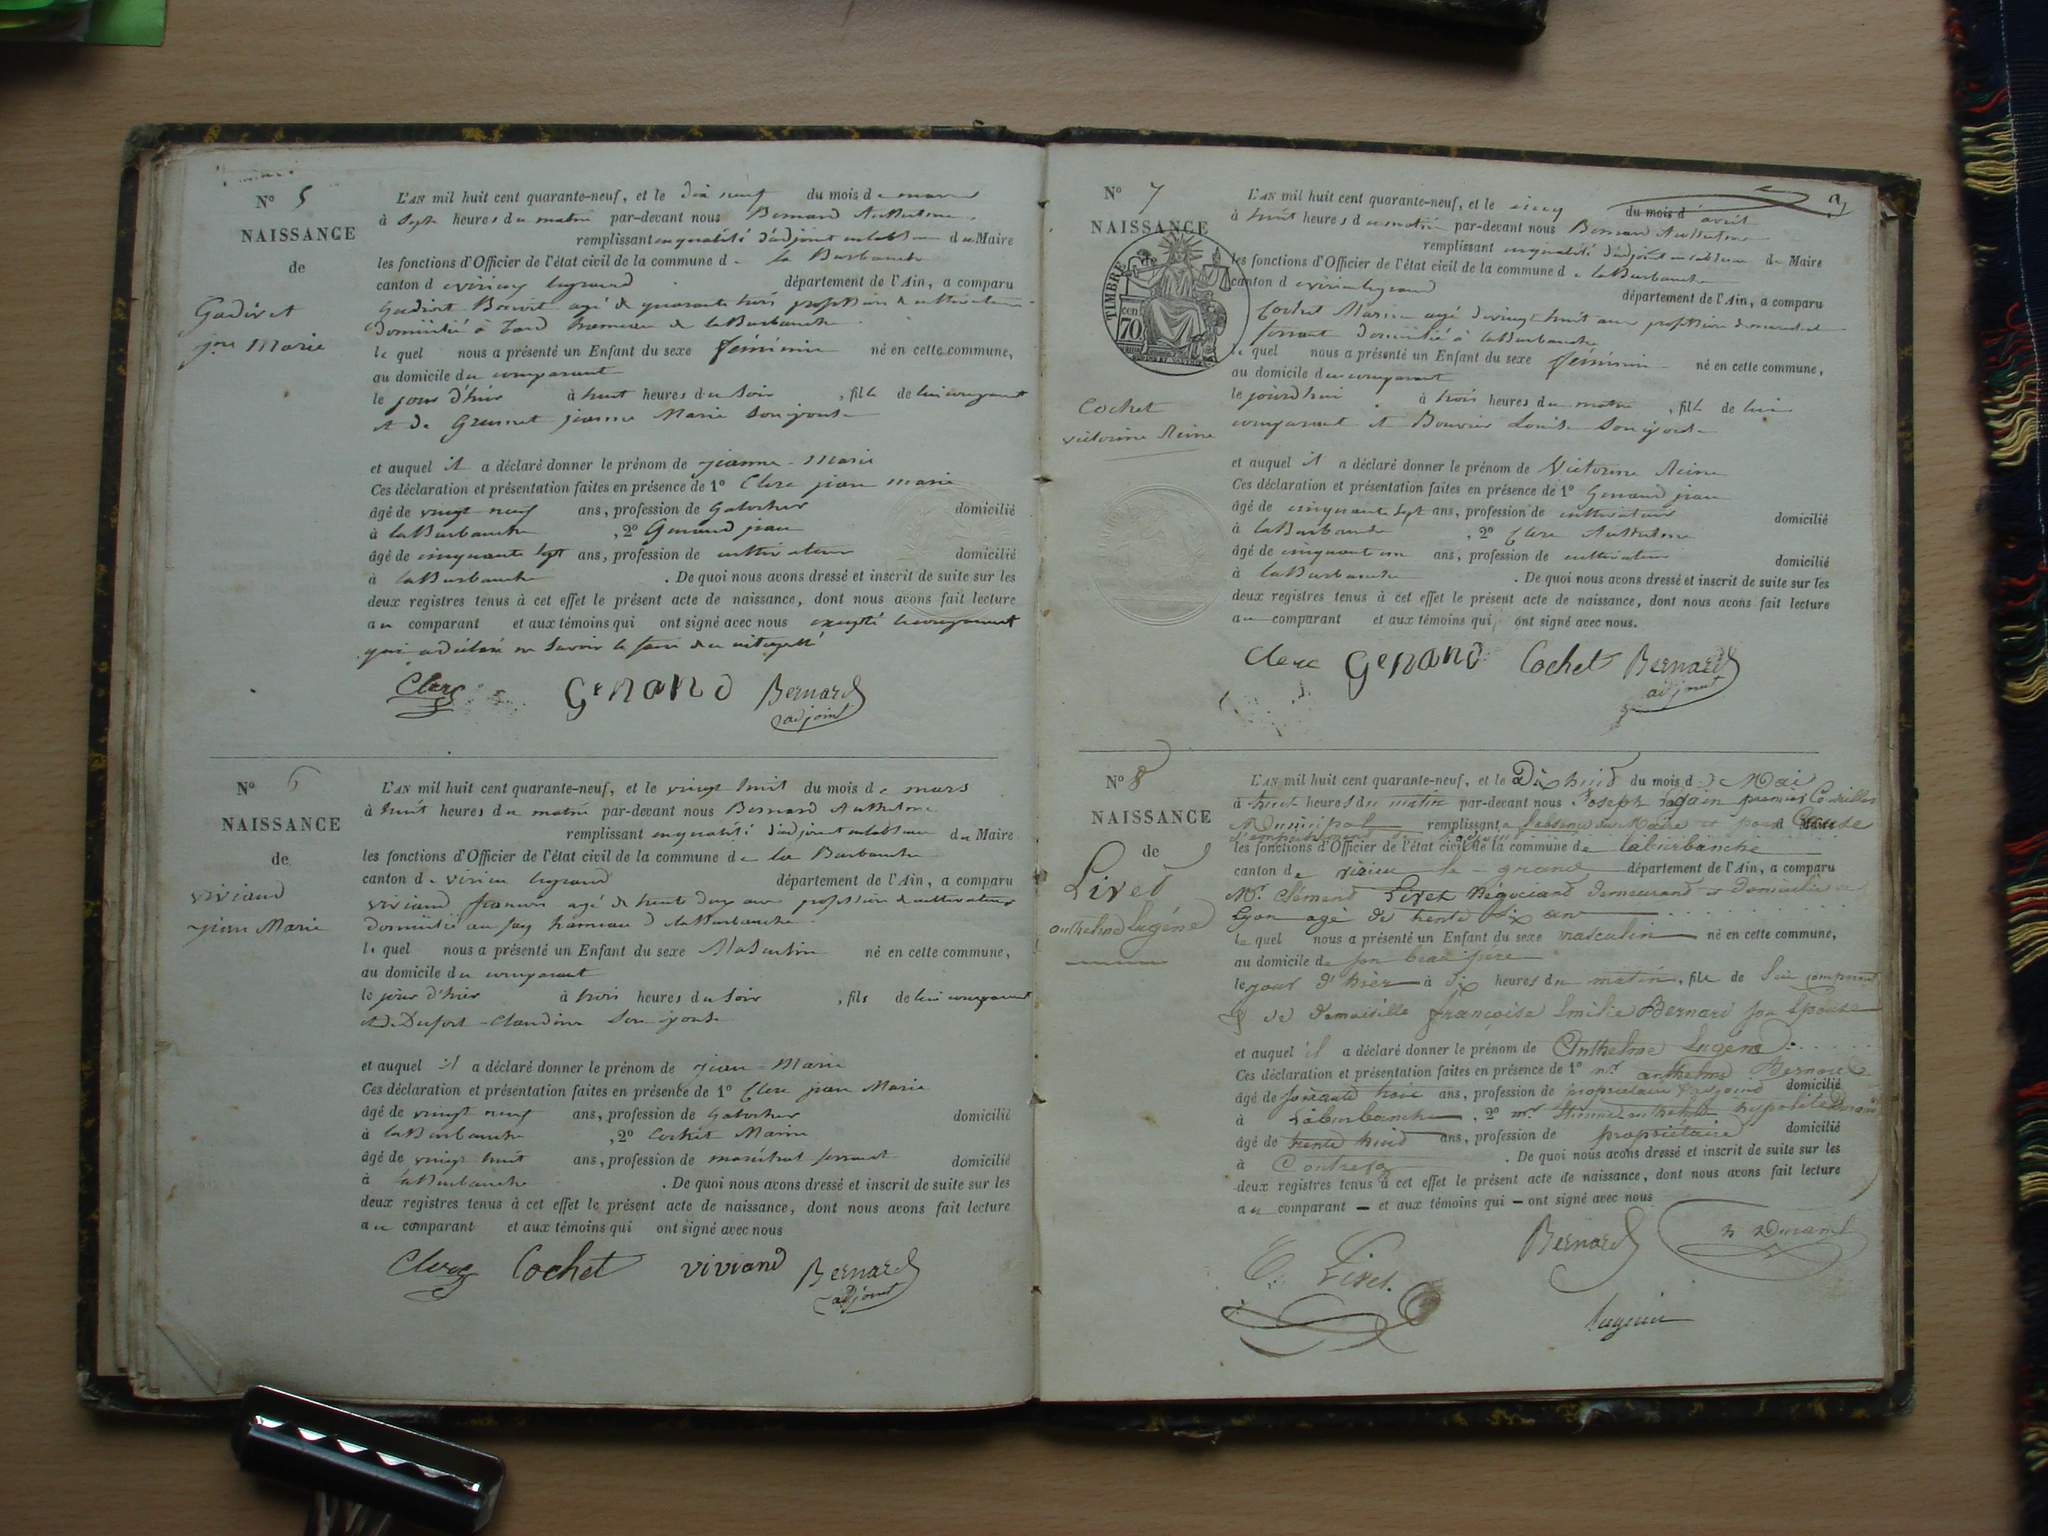 N° 5
NAISSANCE
de
Gadiret
jne Marie
L'AN mil huit cent quarante-neuf, et le dix neuf du mois de mars
à sept heures du matin par-devant nous Bernard Anthelme
remplissant en qualité d'adjoint du Maire
les fonctions d'Officier de l'état civil de la commune de la Burbanche
canton d virieu legrand département de l'Ain, a comparu
agé de quarante trois profession de cultivateur
domicilié à hameau de la Burbanche
le quel nous a présenté un Enfant du sexe féminin né en cette commune,
au domicile du comparant
le jour d'hier à huit heures du soir, fille de lui comparant
et de jeanne Marie son épouse
et auquel il a déclaré donner le prénom de jeanne Marie
Ces déclaration et présentation faites en présence de 1° Clerc jean marie
âgé de vingt neuf ans, profession de Galocher domicilié
à la Burbanche, 2° Genand jean
âgé de cinquante sept ans, profession de cultivateur domicilié
à la Burbanche. De quoi nous avons dressé et inscrit de suite sur les
deux registres tenus à cet effet le présent acte de naissance, dont nous avons fait lecture
au comparant et aux témoins qui ont signé avec nous excepté le comparant
qui a déclaré ne savoir le faire
Clerc Genand Bernard
adjoint
N° 6
NAISSANCE
de
viviand
jean Marie
L'AN mil huit cent quarante-neuf, et le vingt huit du mois de mars
à huit heures du matin par-devant nous Bernard Anthelme
remplissant en qualité d'adjoint du Maire
les fonctions d'Officier de l'état civil de la commune de la Burbanche
canton de virieu legrand département de l'Ain, a comparu
viviand agé de trente deux ans profession de cultivateur
domicilié au hameau d la Burbanche
le quel nous a présenté un Enfant du sexe Masculin né en cette commune,
au domicile du comparant
le jour d'hier à trois heures du soir, fils de lui comparant
et de Dufort Claudine son épouse
et auquel il a déclaré donner le prénom de jean Marie
Ces déclaration et présentation faites en présence de 1° Clerc jean Marie
âgé de vingt neuf ans, profession de Galocher domicilié
à la Burbanche, 2° Cochet Marin
âgé de vingt huit ans, profession de maréchal ferrant domicilié
à la Burbanche. De quoi nous avons dressé et inscrit de suite sur les
deux registres tenus à cet effet le présent acte de naissance, dont nous avons fait lecture
au comparant et aux témoins qui ont signé avec nous
Clerc Cochet viviand Bernard
adjoint
N° 7
NAISSANCE
TIMBRE
70
Cochet
victorine Reine
L'AN mil huit cent quarante-neuf, et le cinq du mois d'avril
à huit heures du matin par-devant nous Bernard Anthelme
remplissant en qualité d'adjoint du Maire
les fonctions d'Officier de l'état civil de la commune de la Burbanche
canton d virieu legrand département de l'Ain, a comparu
Cochet Marin agé de vingt huit ans profession de maréchal
ferrant domicilié à la Burbanche
le quel nous a présenté un Enfant du sexe féminin né en cette commune,
au domicile du comparant
le jourdhui à trois heures du matin, fille de lui
comparant et Bouvier Louise son épouse
et auquel il a déclaré donner le prénom de Victorine Reine
Ces déclaration et présentation faites en présence de 1° Genand jean
âgé de cinquante sept ans, profession de cultivateur domicilié
à la Burbanche, 2° Clerc Anthelme
âgé de cinquante un ans, profession de cultivateur domicilié
à la Burbanche. De quoi nous avons dressé et inscrit de suite sur les
deux registres tenus à cet effet le présent acte de naissance, dont nous avons fait lecture
au comparant et aux témoins qui ont signé avec nous.
Clerc Genand Cochet Bernard
adjoint
N° 8
NAISSANCE
de
Livet
anthelme Eugéne
L'AN mil huit cent quarante-neuf, et le Dix huit du mois de Mai
à huit heures du matin par-devant nous Joseph premier Conseiller
Municipal remplissant
les fonctions d'Officier de l'état civil de la commune de laburbanche
canton de virieu le grand département de l'Ain, a comparu
Mr. Clémend Livet Négociand demeurand et domicilié à
Lyon agé de trente six ans
le quel nous a présenté un Enfant du sexe masculin né en cette commune,
au domicile de son beau père
le jour d'hier à dix heures du matin, fils de lui comparant
& de demoiselle françoise Emilie Bernard son Epouse
et auquel il a déclaré donner le prénom de Anthelme Eugene
Ces déclaration et présentation faites en présence de 1° mr. anthelme Bernard
âgé de soixante trois ans, profession de propriétaire & adjoind domicilié
à Laburbanche, 2° mr. hypolite
âgé de trente huid ans, profession de propriétaire domicilié
à. De quoi nous avons dressé et inscrit de suite sur les
deux registres tenus à cet effet le présent acte de naissance, dont nous avons fait lecture
au comparant et aux témoins qui ont signé avec nous
C. Livet. Bernard